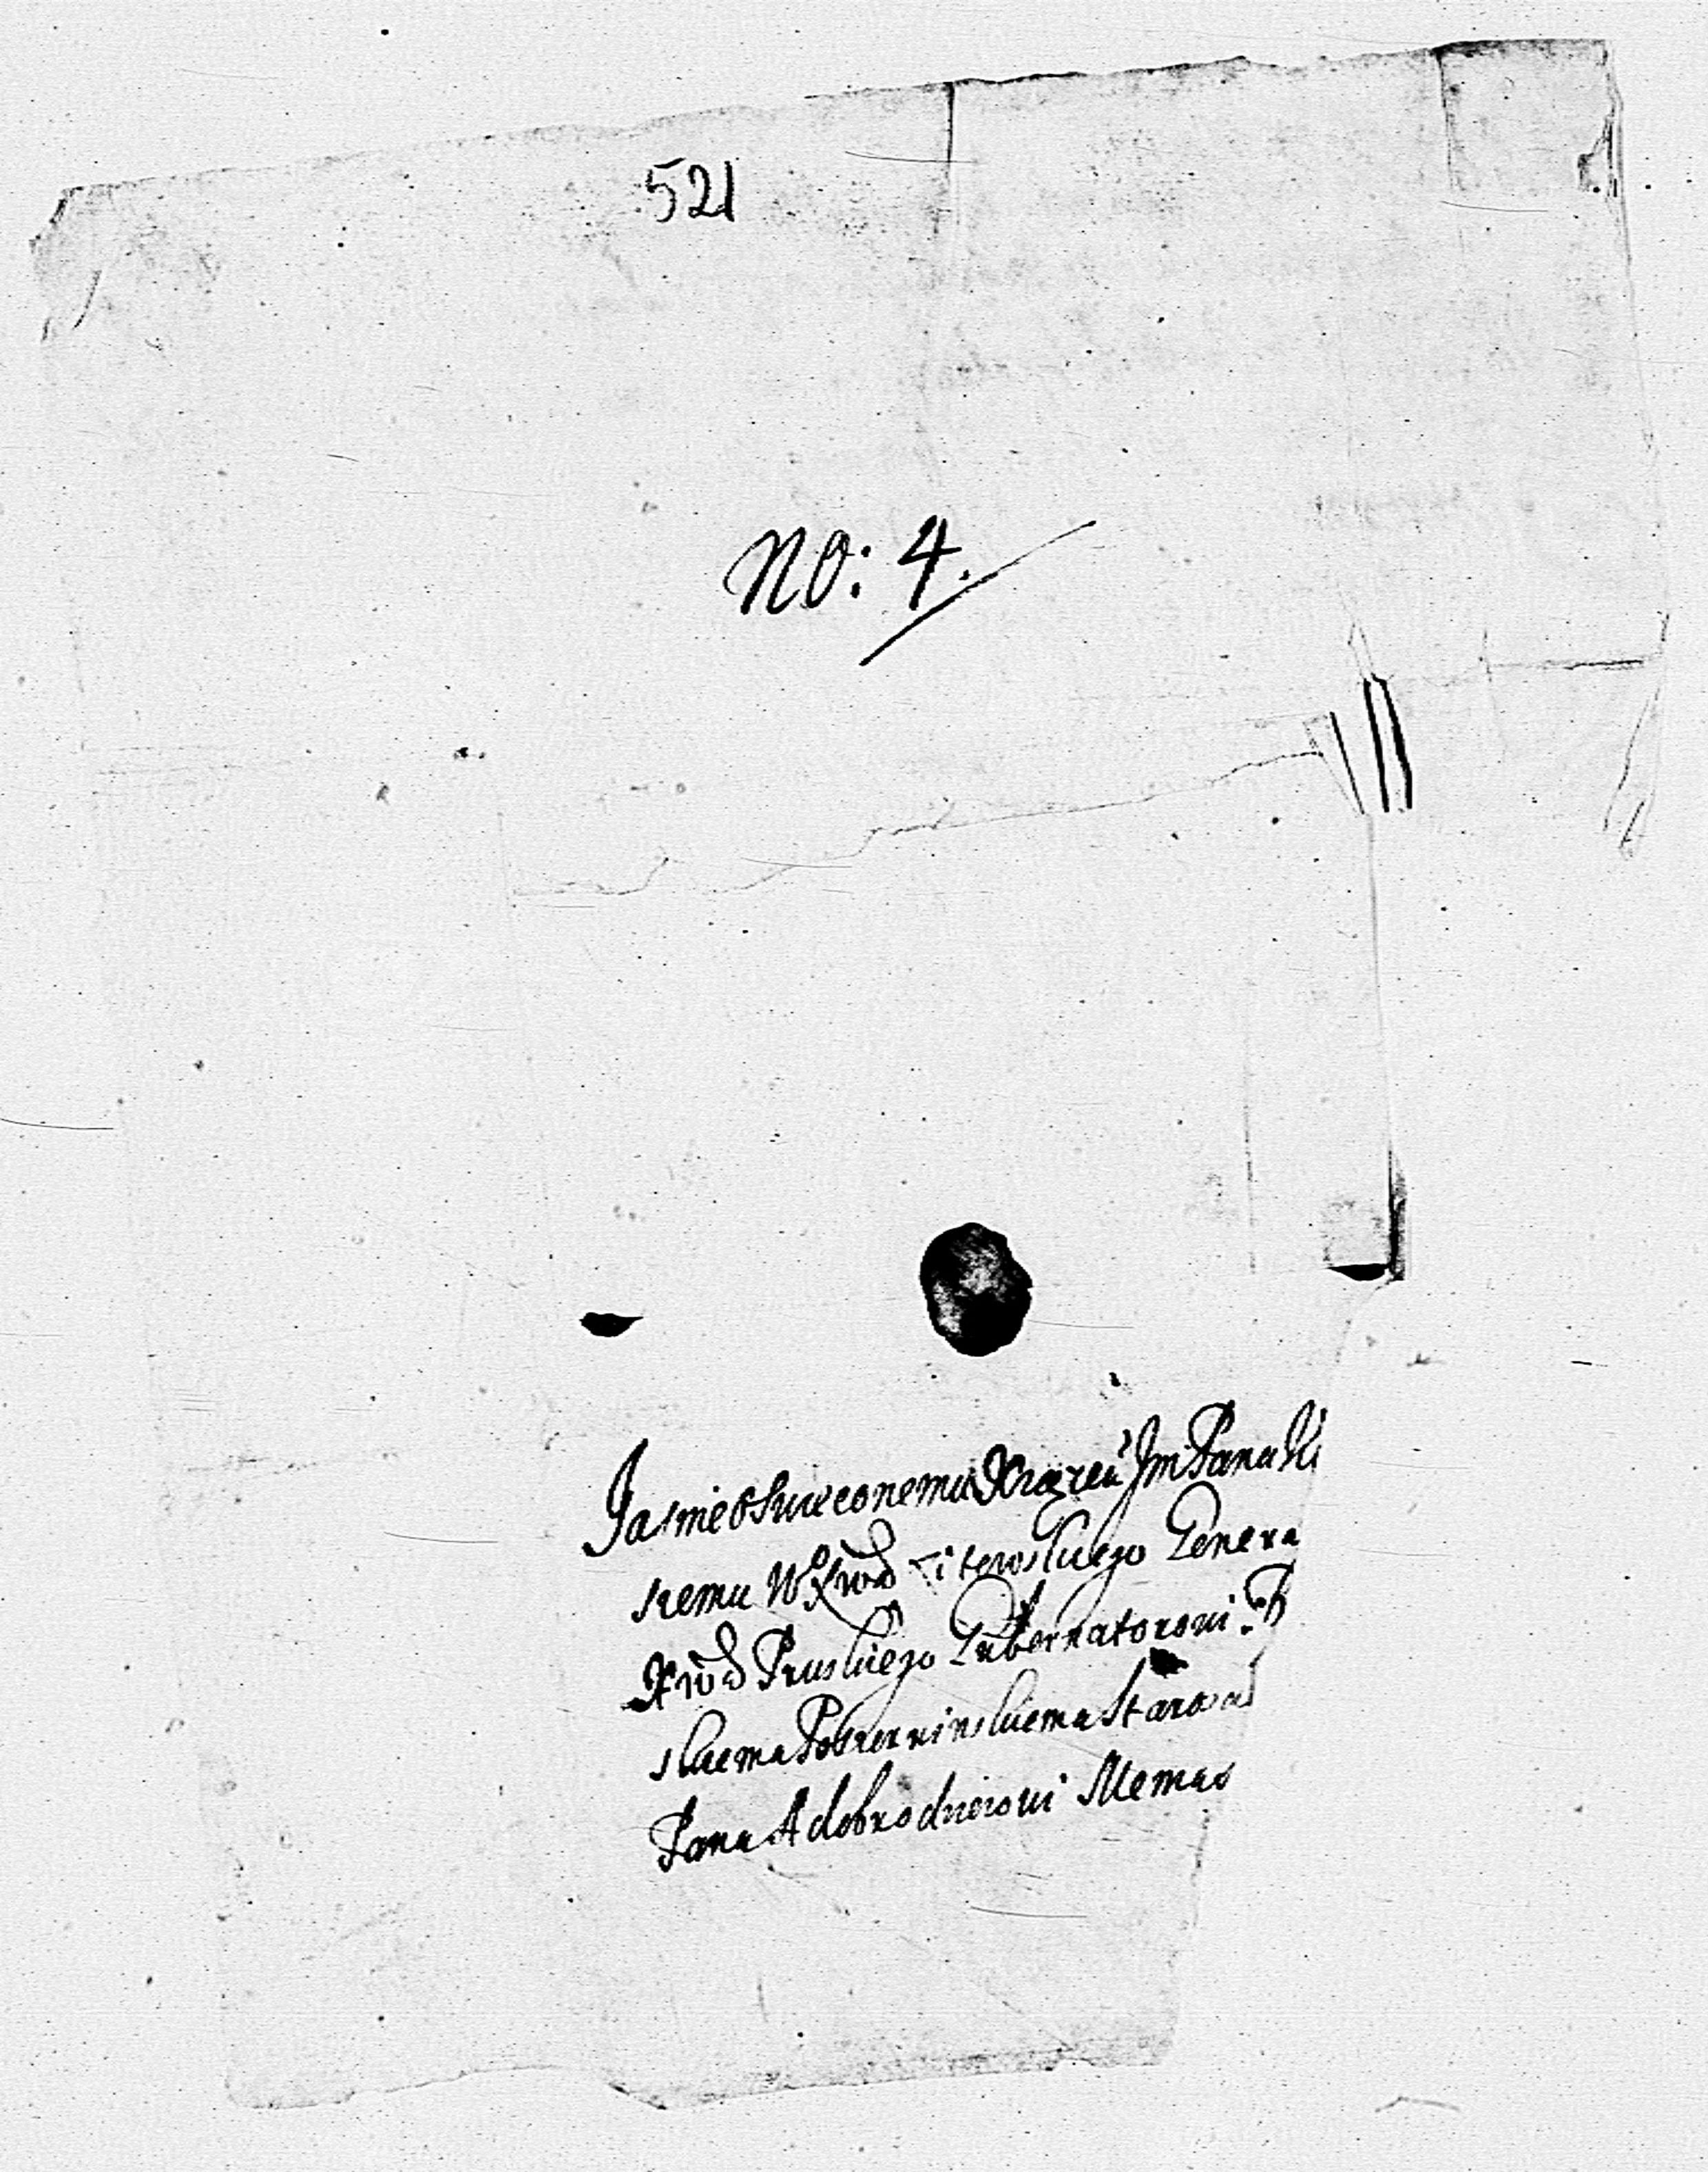 521
No: 4.
Jasnie Oswieconemu Xiązęciu Jm Panu Ko
niemu WoXwa Litewskiego Genera
Xwa Pruskiego Gubernatorowi. B
skiemu Starosc
Panu A dobrodzieiowi Memu